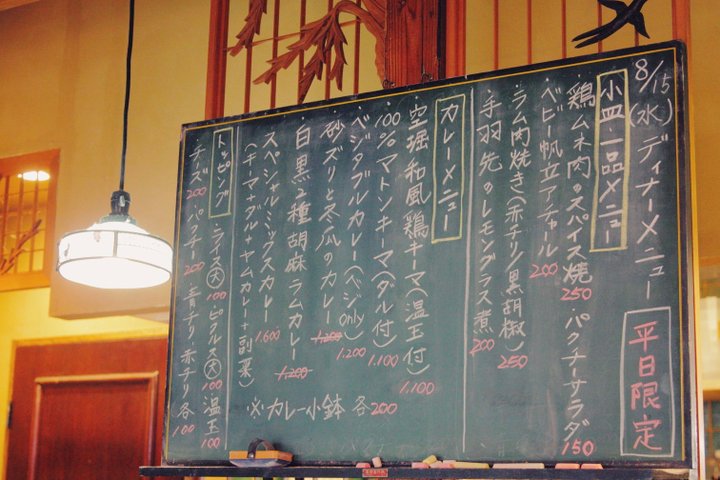 8/15(水)ディナーメニュー
平日限定
小皿・一品メニュー
・鶏ムネ肉のスパイス焼 250 ・パクチーサラダ 150
・ベビー帆立アチャール 200
・ラム肉焼き(赤チリ/黒胡椒) 250
・手羽先のレモングラス煮 200
カレーメニュー
・空堀和風鶏キーマ(温玉付) 1.100
・100%マトンキーマ(ダル付) 1.100
・ベジタブルカレー(ベジonly) 1.200
・砂ズリと冬瓜のカレー 1.200
・白黒2種胡麻ラムカレー 1.200
・スペシャルミックスカレー 1.600
(キーマ+ダル+ヤムカレー+副菜)
※・カレー小鉢 各200
トッピング
・ライス(大) 100 ピクルス(大) 100 温玉 100
チーズ 200 パクチー 200 青チリ 赤チリ 各100